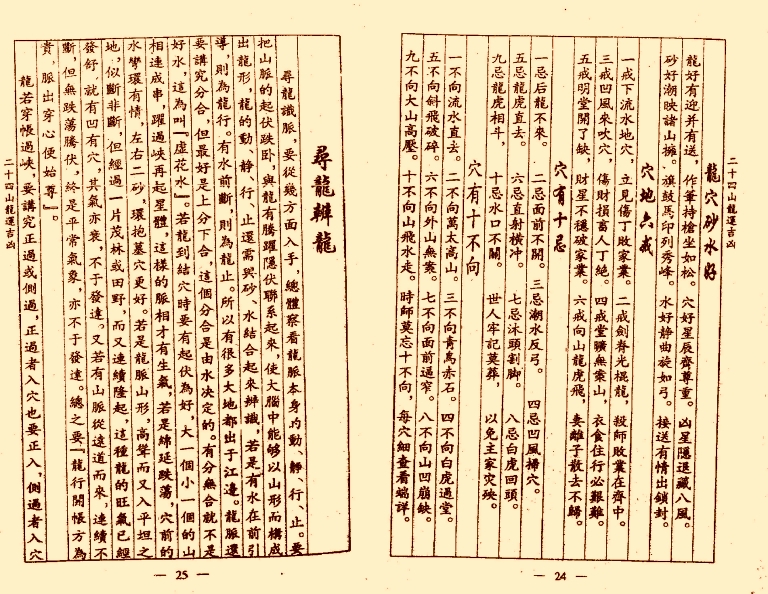 二十四山龍運吉凶
龍穴砂水好
龍好有迎并有送,作筆持槍坐如松。穴好星辰齊尊重。凶星隱退藏八風。
砂好潮映諸山擁。旗鼓馬印列秀峰。水好靜曲旋如弓。接送有情出鎖封。
穴地六戒
一戒下流水地穴,立見傷丁敗家業。二戒劍脊光棍龍,殺師敗業在齊中。
三戒凹風來吹穴,傷財損畜人丁絕。四戒堂曠無案山,衣食住行必艱難。
五戒明堂開了缺,財星不穩破家業。六戒向山龍虎飛,妻離子散去不歸。
穴有十忌
一忌后龍不來。二忌面前不開。三忌潮水反弓。四忌凹風掃穴。
五忌龍虎直去。六忌直射橫冲。七忌沐頭割脚。八忌白虎回頭。
九忌龍虎相斗,十忌水口不關。世人牢記莫葬,以免主家灾殃。
穴有十不向
一不向流水直去。二不向萬太高山。三不向青禹赤石。四不向白虎過堂。
五不向斜飛破碎。六不向外山無案。七不向面前逼窄。八不向山凹崩缺。
九不向大山高壓。十不向山飛水走。時師莫忘十不向,每穴細查看端詳。
— 24 —
尋龍辨龍
尋龍識脈,要從幾方面入手,總體察看龍脈本身的動、靜、行、止。要
把山脈的起伏跌卧,與龍有騰躍隱伏聯系起來,使大腦中能够以山形而構成
出龍形,龍的動、靜、行、止還需與砂、水結合起來辨識,若是有水在前引
導,則為龍行。有水前斷,則為龍止。所以有很多大地都出于江邊。龍脈還
要講究分合,但最好是上分下合,這個分合是由水決定的。有分無合就不是
好水,這為叫『虛花水』。若龍到結穴時要有起伏為好,大一個小一個的山
相連成串,躍過峽再起星體,這樣的脈相才有生氣,若是綿延跌蕩,穴前的
水彎環有情,左右二砂,環抱墓穴更好。若是龍脈山形,高聳而又入平坦之
地,似斷非斷,但經過一片茂林或田野,而又連續隆起,這種龍的旺氣已經
發舒,就有凹有穴,其氣亦衰,不于發達。又若有山脈從遠道而來,連續不
斷,但無跌蕩騰伏,終是平常氣象,亦不于發達。總之要『龍行開帳方為
貴,脈出穿心便始尊』。
龍若穿帳過峽,要講究正過或側過,正過者入穴也要正入,側過者入穴
二十四山龍運吉凶
— 25 —